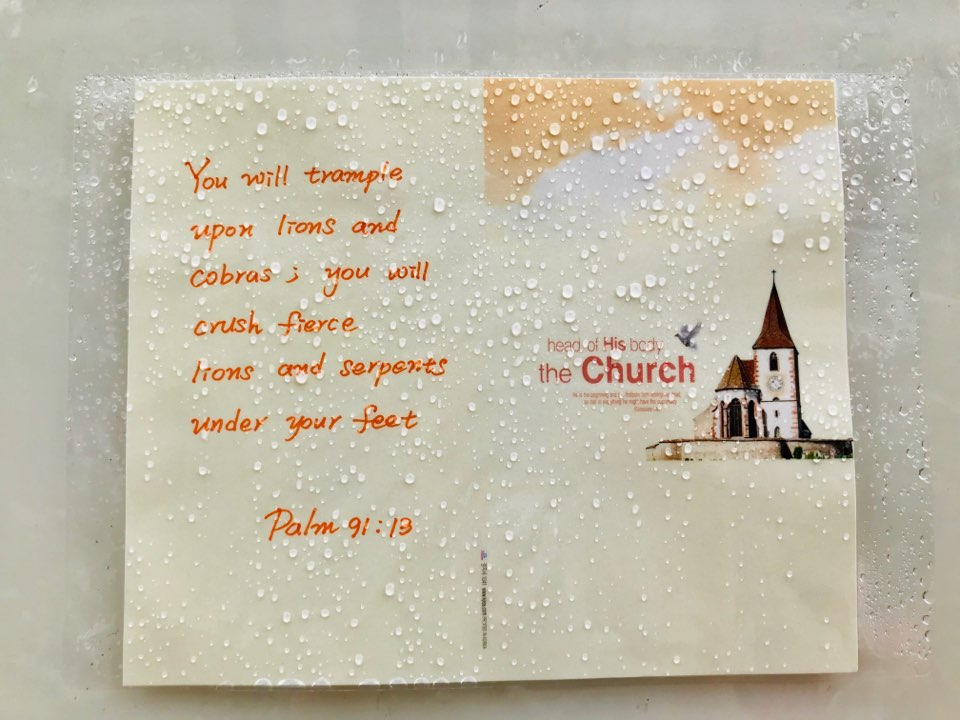 You will trample
upon lions and
cobras ; you will
crush fierce
lions and serpents
under your feet
Palm 91:13
head of His body
the Church